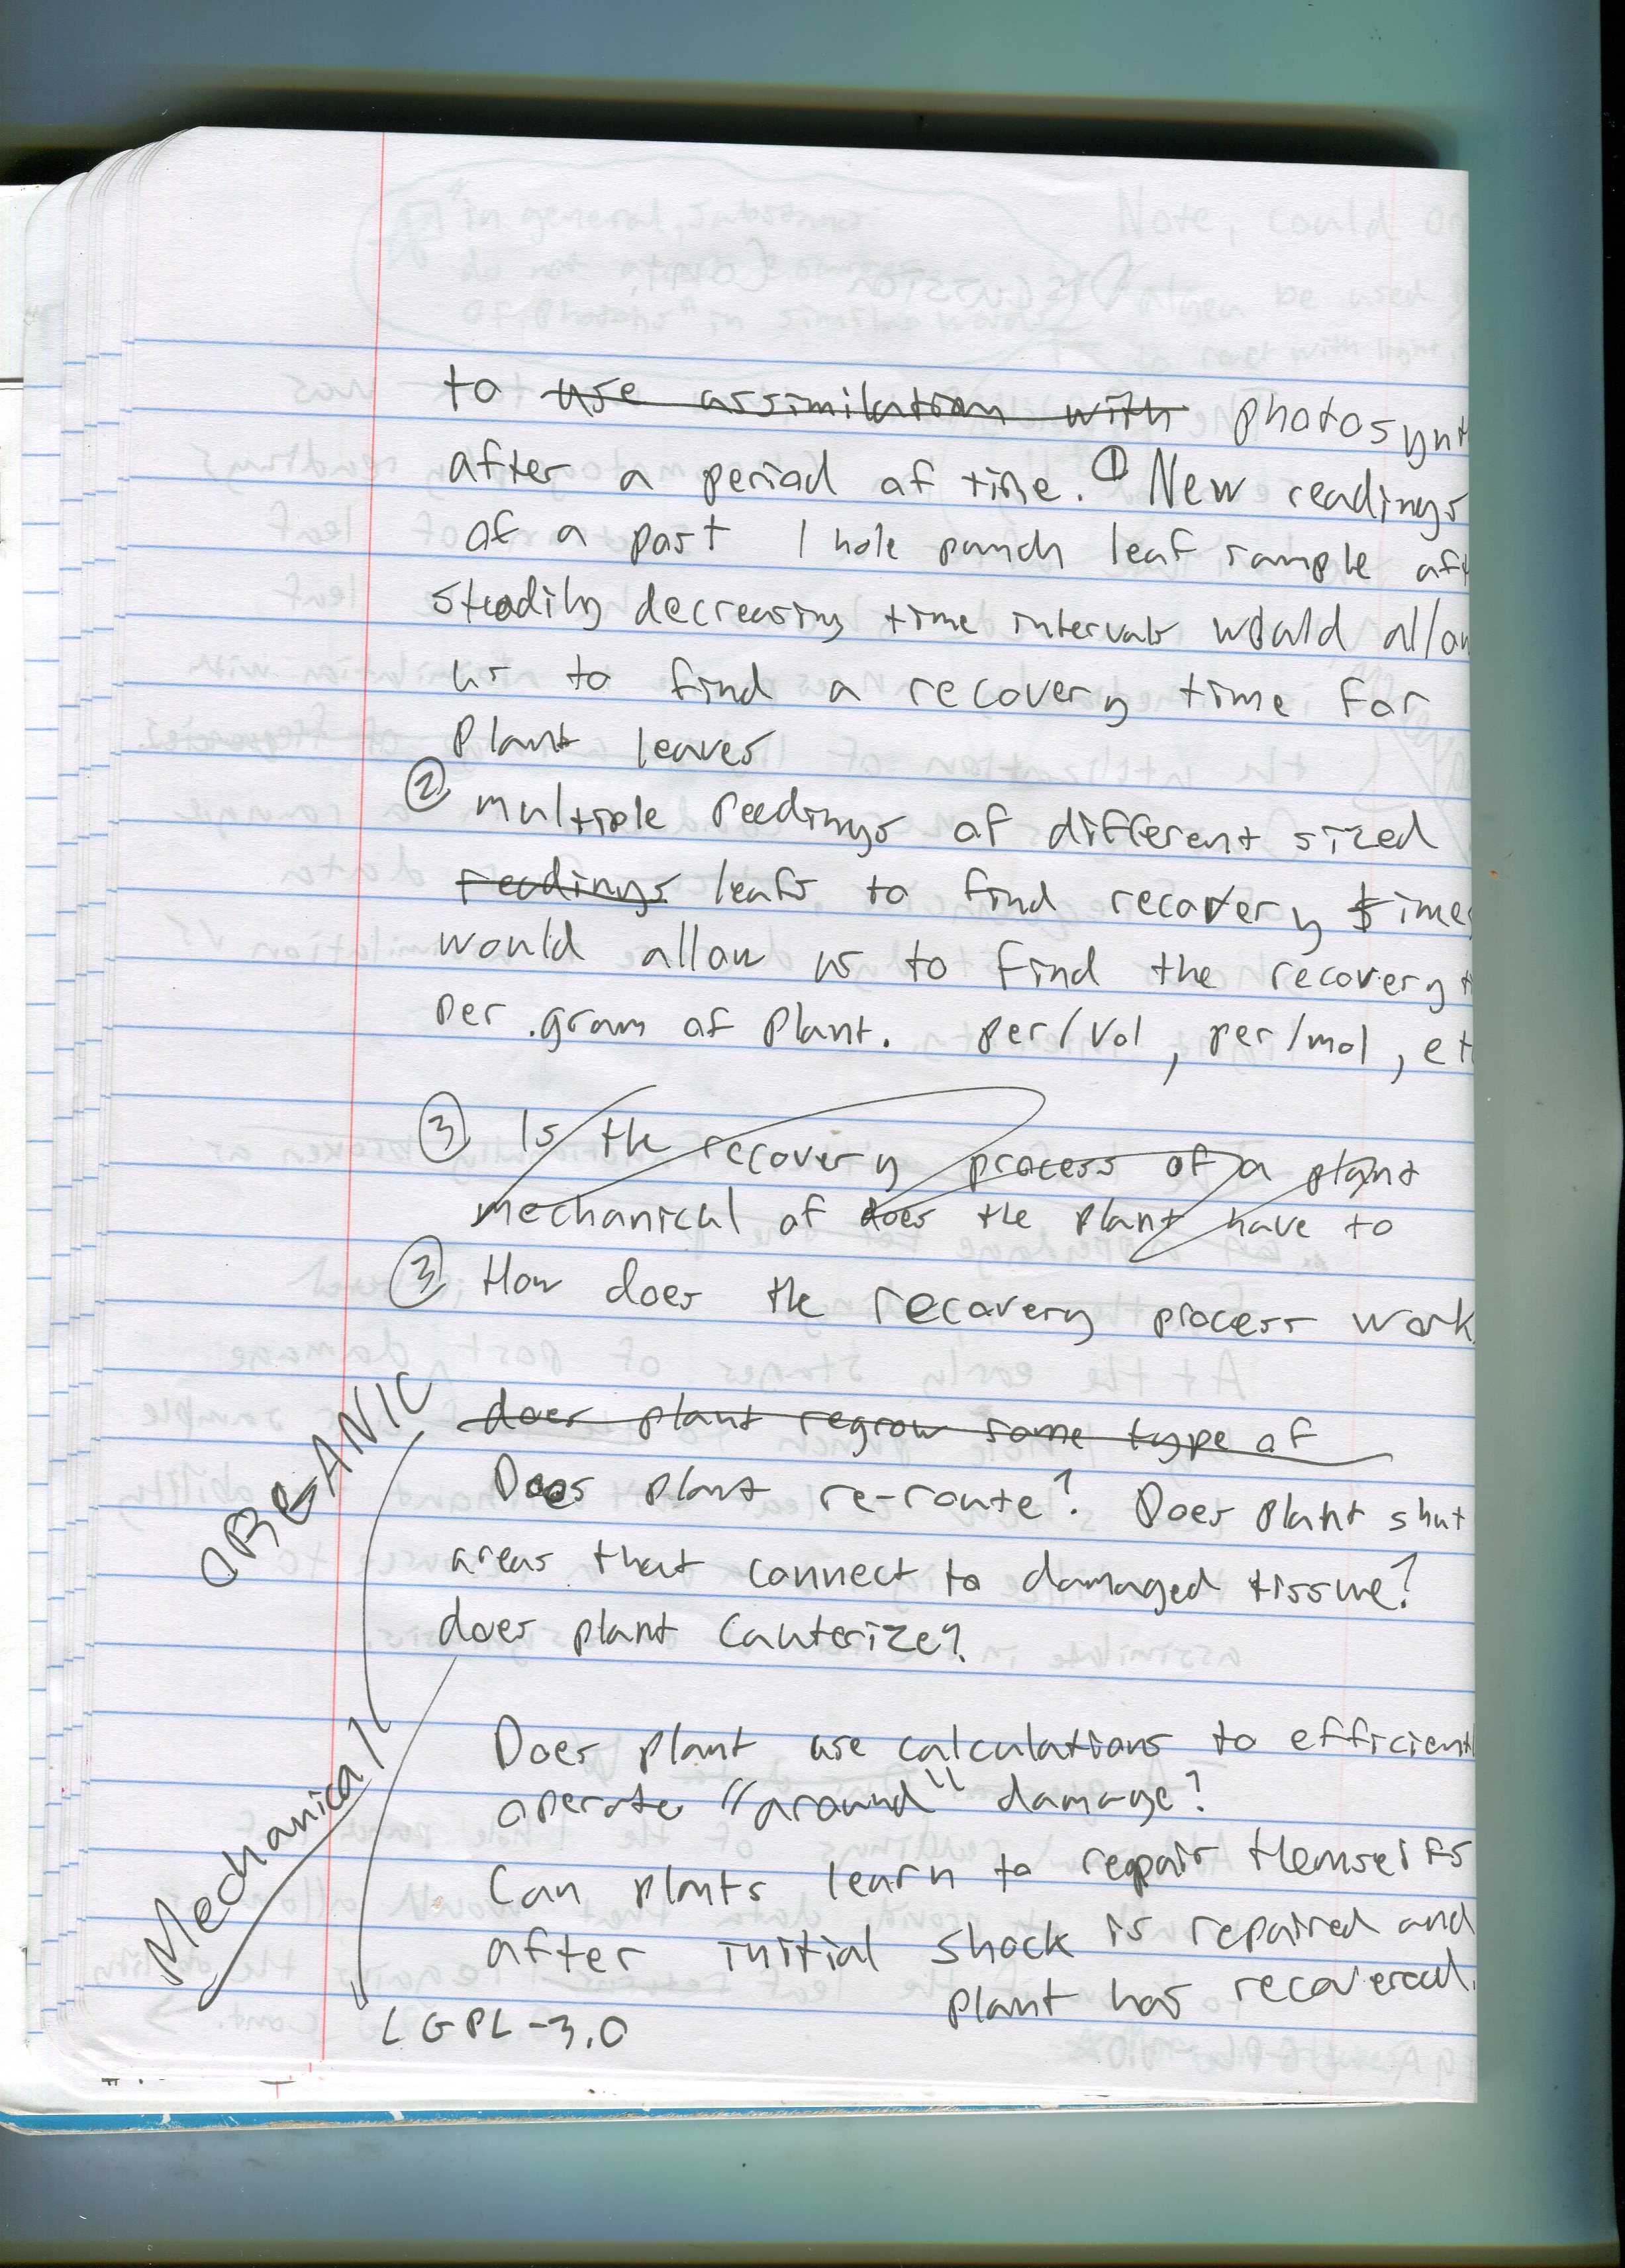 to use assimilation with photosynt
after a period of time. ① New readings
of a past 1 hole punch leaf sample aft
steadily decreasing time intervals would allow
us to find a recovery time for
plant leaves
② multiple readings of different sized
readings leafs to find recovery times
would allow us to find the recovery t
per gram of plant. per/vol, per/mol, et
③ Is the recovery process of a plant
mechanical of does the plant have to
③ How does the recovery process work
does plant regrow some type of
ORGANIC
Does plant re-route? Does plant shut
areas that connect to damaged tissue?
does plant cauterize?
Does plant use calculations to efficient
operate "around" damage?
Mechanical
Can plants learn to repair themselfs
after initial shock is repaired and
plant has recovered.
LGPL-3.0